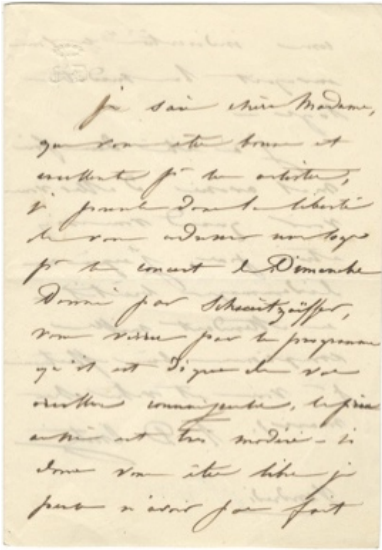 je sais chère Madame,
que vous êtes bonne et
excellente pr les artistes,
je prends donc la liberté
de vous adresser une loge
pr le concert de Dimanche
Donné par
vous verrez par le programme
qu'il est digne de vos
oreilles
est très modéré - si
donc vous êtes libre je
pense n'avoir pas fait